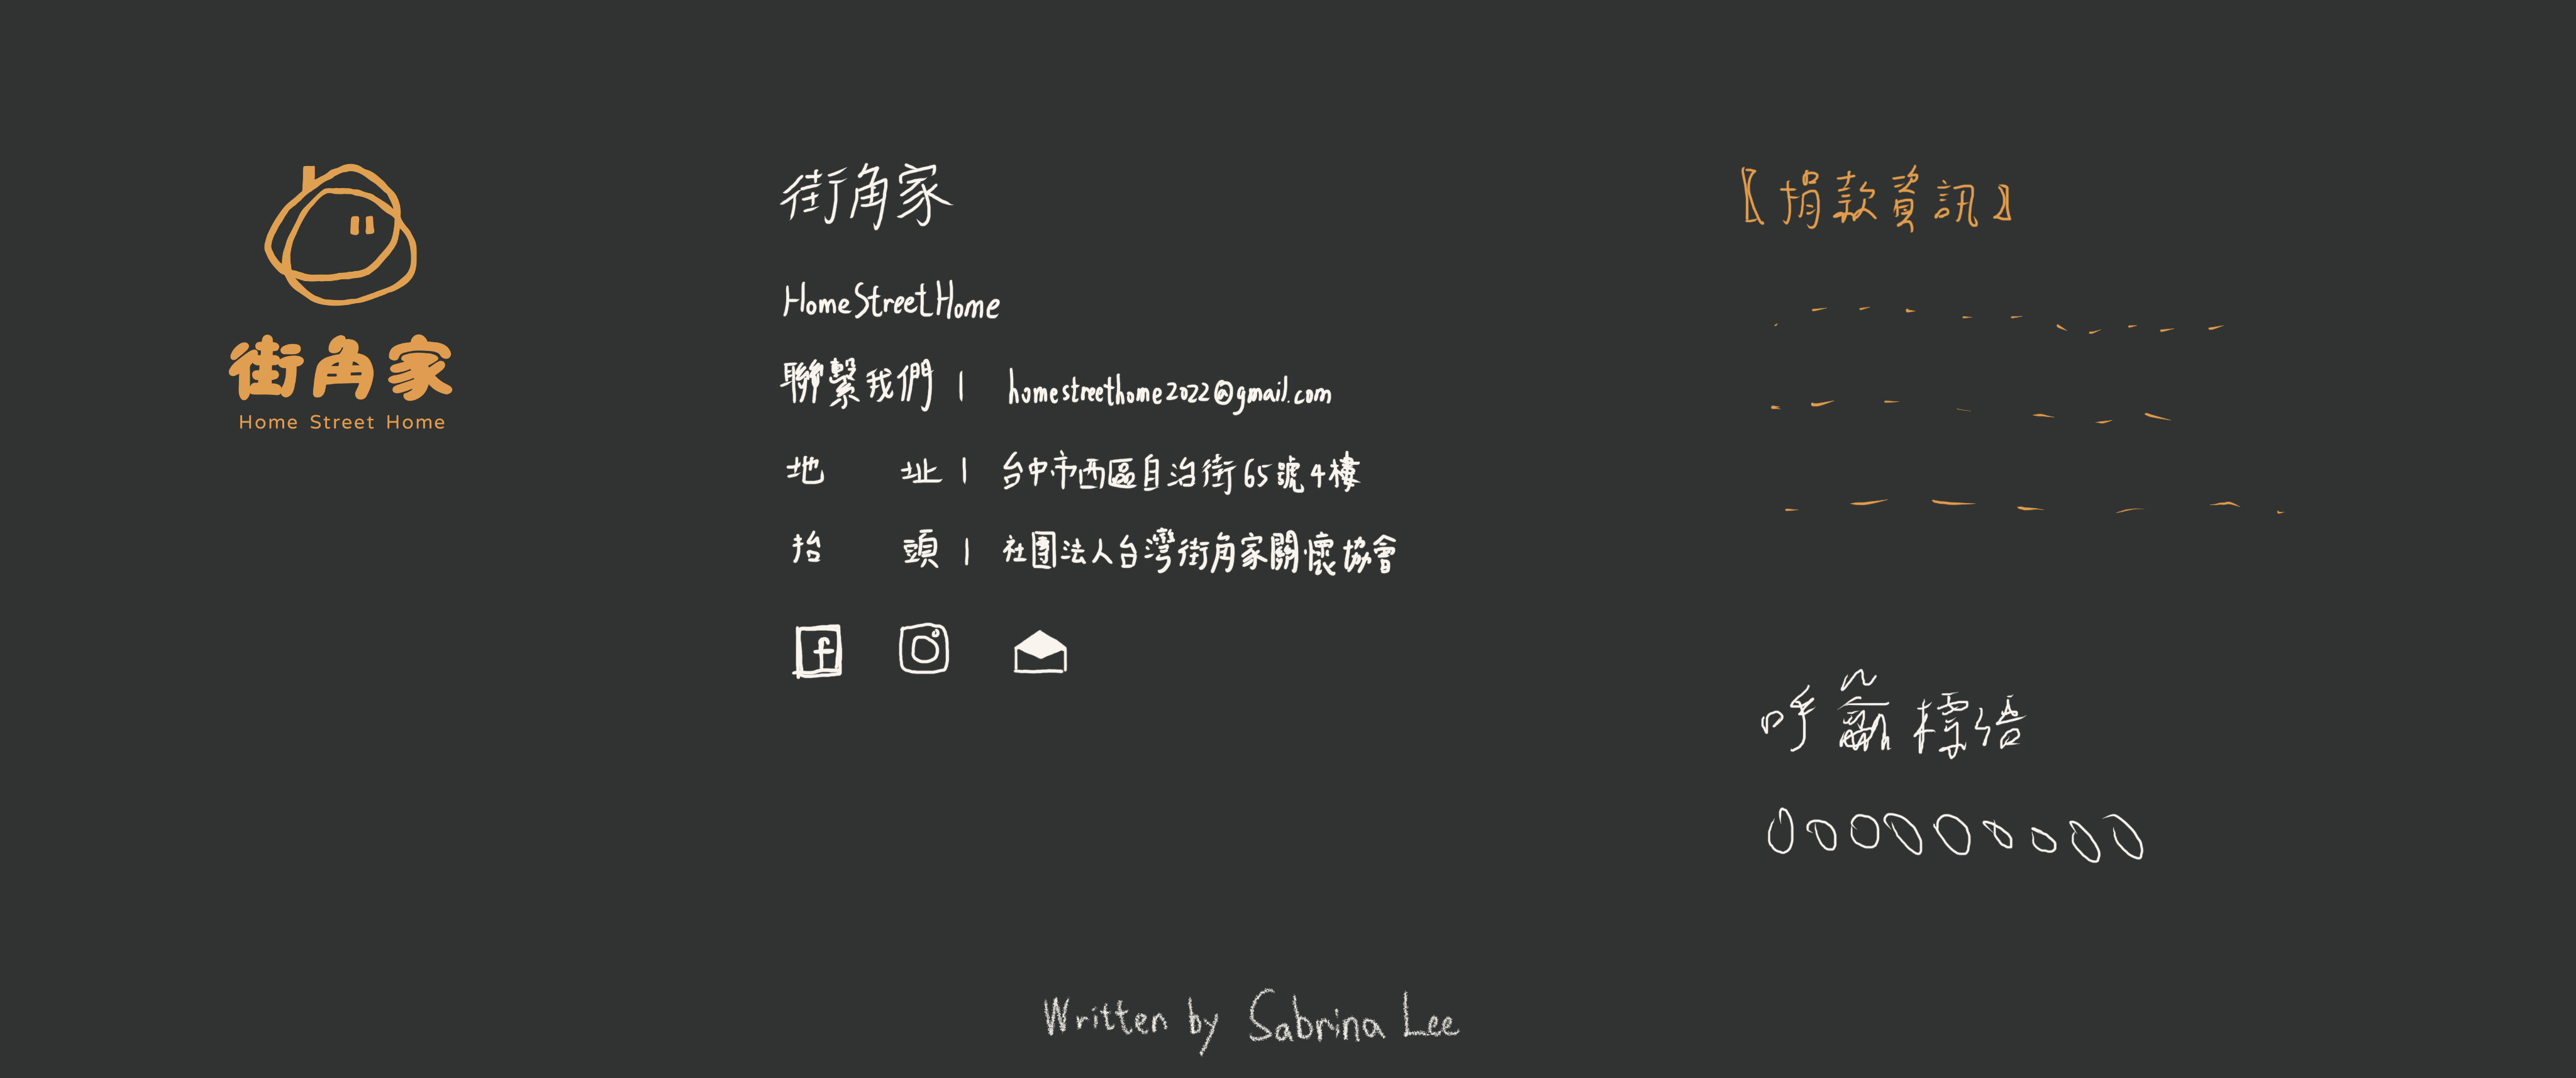 街角家
Home Street Home
街角家
HomeStreetHome
聯繫我們 | homestreethome2022@gmail.com
地 址 | 台中市西區自治街65號4樓
抬 頭 | 社團法人台灣街角家關懷協會
【捐款資訊】
呼籲標語
Written by Sabrina Lee